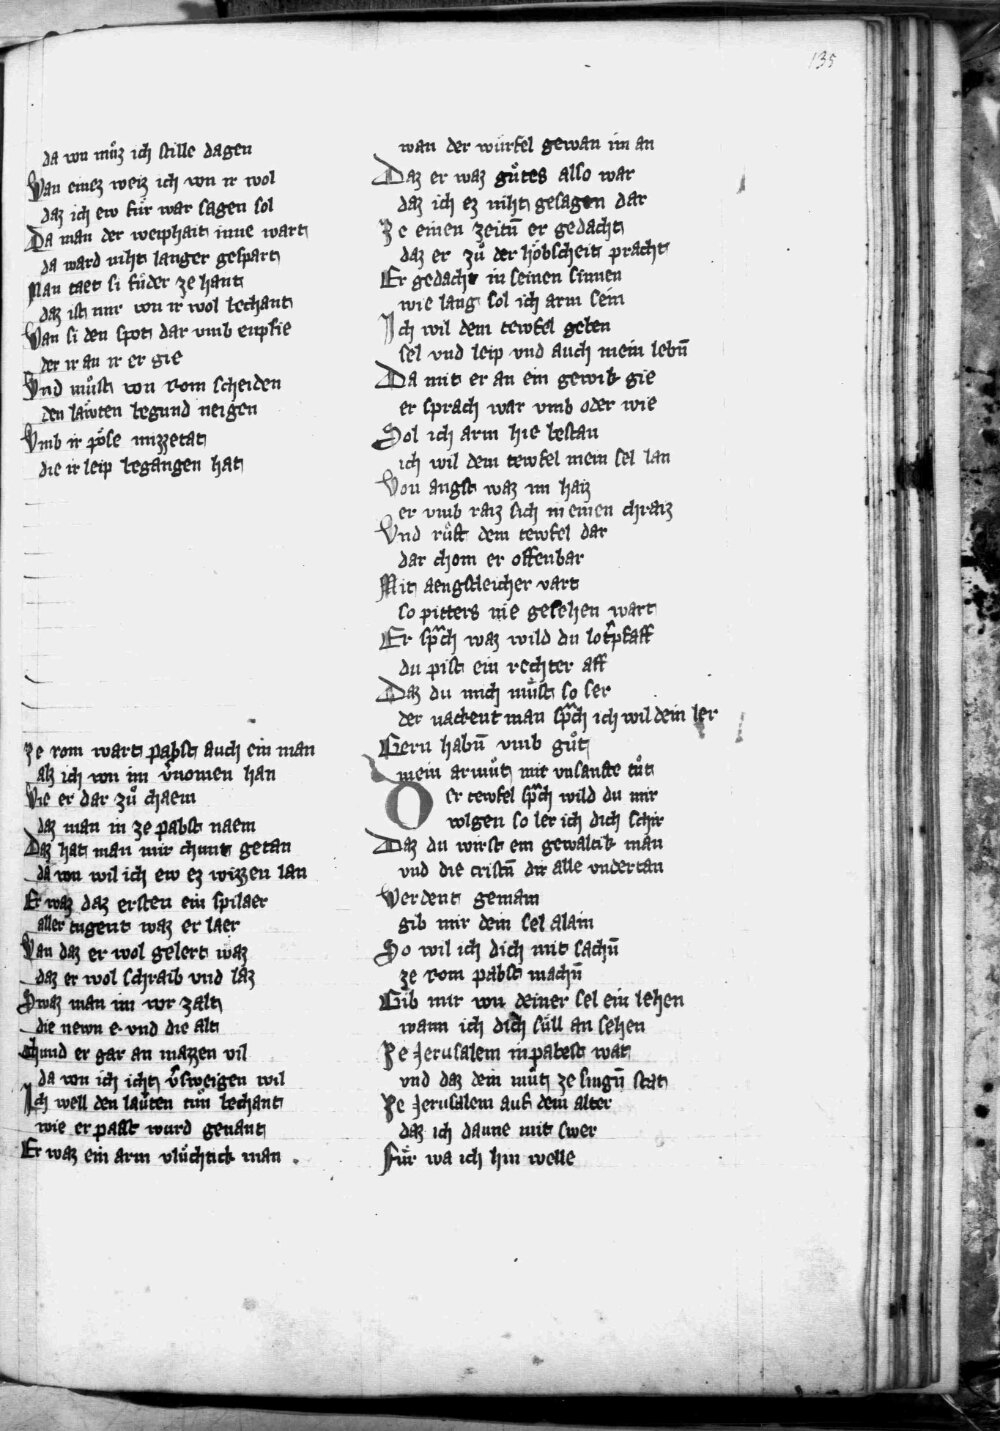 135
da von muͦz ich stille dagen
Wan einez weiz ich von ir wol
daz ich ew fuͤr war sagen sol
Da man der weiphait inne wart
da ward niht langer gespart
Man taet si fuͤder ze hant
daz ist mir von ir wol bechant
Wan si den spot dar vmb enpfie
der ir an ir er gie
Vnd muͦst von rom scheiden
den laͤwten begund neigen
Vmb ir poͤse missetat
die ir leip begangen hat
Ze rom wart pabst auch ein man
alz ich von im v̄nomen han
Wie er dar zuͦ chaem
daz man in ze pabst naem
Daz hat man mir chunt getan
da von wil ich ew ez wizzen lan
Er waz daz ersten ein spilaer
aller tugent waz er laer
Wan daz er wol gelert waz
daz er wol schraib vnd laz
Swaz man im vor zalt
die newn e vnd die alt
chund er gar an mazzen vil
da von ich icht v̄sweigen wil
Ich well den laͤuten tuͦn bechant
wie er pabst wurd genant
Er waz ein arm vluͤchtick man
wan der wuͤrfel gewan im an
Daz er waz guͦtes also war
daz ich ez niht gesagen dar
Ze einen zeitn̄ er gedacht
daz er zuͦ der hoͤbscheit pracht
Er gedacht in seinen sinnen
wie lang sol ich arm sein
Ich wil dem tewfel geben
sel vnd leip vnd auch mein lebn̄
Da mit er an ein gewik gie
er sprach war vmb oder wie
Sol ich arm hie bestan
ich wil dem tewfel mein sel lan
Von angst waz im haiz
er vmb raiz sich in einen chraiz
Vnd ruͤft dem tewfel dar
dar chom er offenbar
Mit aengstleicher vart
so pitters nie gesehen wart
Er sp̄ch waz wild du lot̄pfaff
du pist ein rechter aff
Daz du mich muͤst so ser
der nackent man sp̄ch ich wil dein ler
Gern habn̄ vmb guͦt
mein armuͦt mir vnsanfte tuͦt
Der tewfel sp̄ch wild du mir
volgen so ler ich dich schir
Daz du wirst ein gewaltik man
vnd die cristn̄ dir alle vndertan
Werdent gemain
gib mir dein sel alain
So wil ich dich mit sachn̄
ze rom pabst machn̄
Gib mir von deiner sel ein lehen
wann ich dich suͤll an sehen
Ze Jerusalem in pabest wat
vnd daz dein muͦt ze singn̄ stat
Ze Jerusalem auf dem alter
daz ich danne mit swer
Fuͤr wa ich hin welle